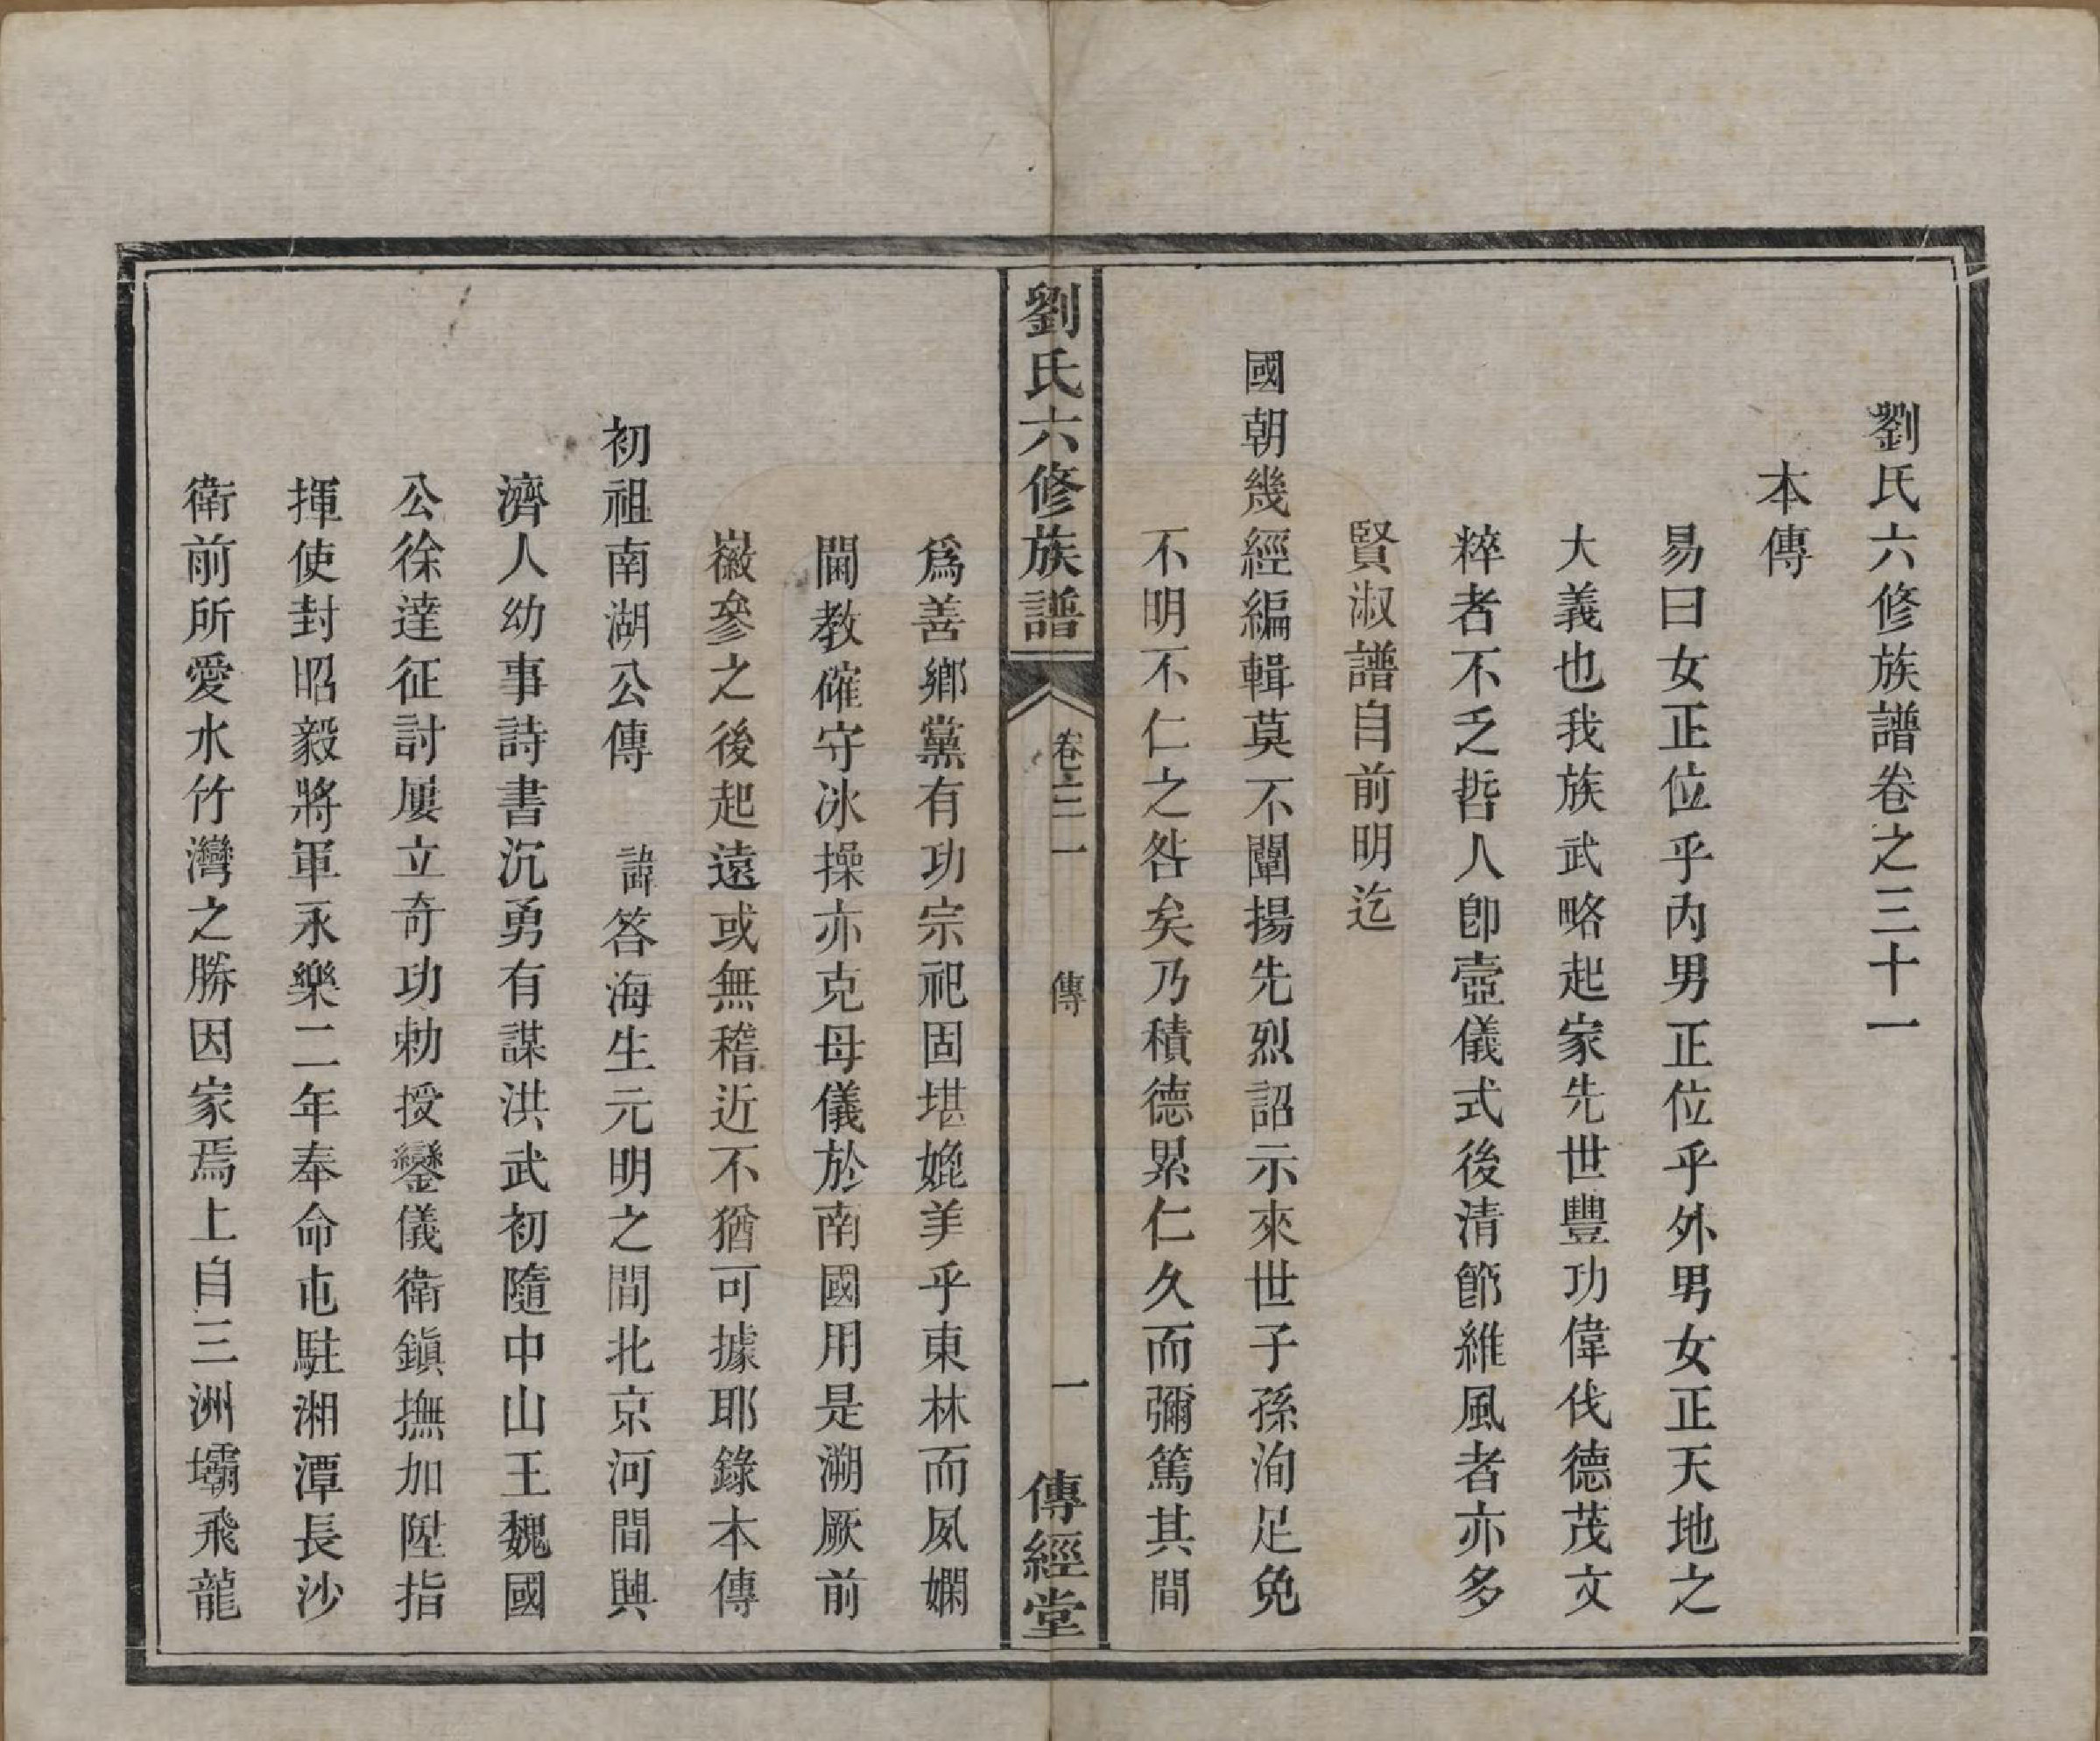 劉氏六修族譜卷之三十一
本傳
易曰女正位乎內男正位乎外男女正天地之
大義也我族武略起家先世豐功偉伐德茂文
粹者不乏哲人卽壼儀式後淸節維風者亦多
賢淑譜自前明迄
國朝幾經編輯莫不闡揚先烈詔示來世子孫洵足免
不明不仁之咎矣乃積德累仁久而彌篤其間
劉氏六修族譜
卷三一
傳
一
傳經堂
爲善鄉黨有功宗祀固堪媲美乎東林而夙嫻
閫教確守冰操亦克母儀於南國用是溯厥前
徽參之後起遠或無稽近不猶可據耶錄本傳
初祖南湖公傳 諱答海生元明之間北京河間興
濟人幼事詩書沉勇有謀洪武初隨中山王魏國
公徐達征討屢立奇功勅授鑾儀衛鎭撫加陞指
揮使封昭毅將軍永樂二年奉命屯駐湘潭長沙
衛前所愛水竹灣之勝因家焉上自三洲壩飛龍